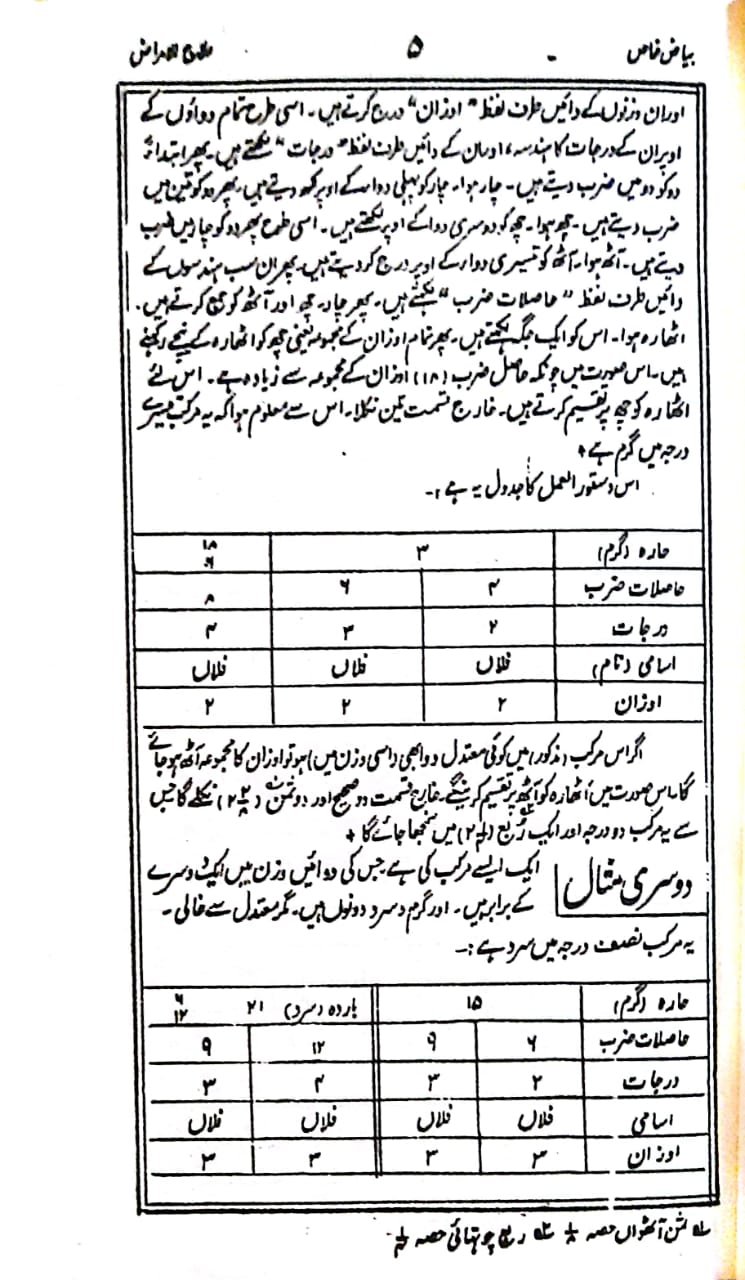 بیاض خاص ۵ علاج الامراض
اور ان وزنوں کے دائیں طرف لفظ "اوزان" درج کرتے ہیں۔ اسی طرح تمام دواؤں کے
اوپر ان کے درجات کا ہندسہ، اور ان کے دائیں طرف لفظ "درجات" لکھتے ہیں۔ پھر ابتداءً
دو کو دو میں ضرب دیتے ہیں۔ چار ہوا۔ چار کو پہلی دوا کے اوپر لکھ دیتے ہیں۔ پھر دو کو تین میں
ضرب دیتے ہیں۔ چھ ہوا۔ چھ کو دوسری دوا کے اوپر لکھتے ہیں۔ اسی طرح پھر دو کو چار میں ضرب
دیتے ہیں۔ آٹھ ہوا۔ آٹھ کو تیسری دوا کے اوپر درج کر دیتے ہیں۔ پھر ان سب ہندسوں کے
دائیں طرف لفظ "حاصلات ضرب" لکھتے ہیں۔ پھر چار، چھ اور آٹھ کو جمع کرتے ہیں۔
اٹھارہ ہوا۔ اس کو ایک جگہ لکھتے ہیں۔ پھر تمام اوزان کے مجموعہ یعنی چھ کو اٹھارہ کے نیچے رکھتے
ہیں۔ اس صورت میں چونکہ حاصل ضرب (۱۸) اوزان کے مجموعہ سے زیادہ ہے۔ اس لئے
اٹھارہ کو چھ پر تقسیم کرتے ہیں۔ خارج قسمت تین نکلا۔ اس سے معلوم ہوا کہ یہ مرکب تیسرے
درجہ میں گرم ہے +
اس دستور العمل کا جدول یہ ہے :-
حارہ (گرم) ۳ ۱۸ ۶
حاصلات ضرب ۴ ۶ ۸
درجات ۲ ۳ ۴
اسامی (نام) فلاں فلاں فلاں
اوزان ۲ ۲ ۲
اگر اس مرکب (مذکور) میں کوئی معتدل دوا بھی (اسی وزن میں) ہو تو اوزان کا مجموعہ آٹھ ہو جائے
گا۔ اس صورت میں اٹھارہ کو آٹھ پر تقسیم کرینگے۔ خارج قسمت دو صحیح اور دو ثمن (۲ ۲/۸) نکلے گا جس
سے یہ مرکب دو درجہ اور ایک ربع (۲ ۱/۴) میں سمجھا جائے گا +
دوسری مثال ایک ایسے مرکب کی ہے جس کی دوائیں وزن میں ایک دوسرے
کے برابر ہیں۔ اور گرم و سرد دونوں ہیں۔ مگر معتدل سے خالی۔
یہ مرکب نصف درجہ میں سرد ہے :-
حارہ (گرم) ۱۵ باردہ (سرد) ۲۱ ۶ ۱۲
حاصلات ضرب ۶ ۹ ۱۲ ۹
درجات ۲ ۳ ۴ ۳
اسامی فلاں فلاں فلاں فلاں
اوزان ۳ ۳ ۳ ۳
۱؎ ثمن آٹھواں حصہ ۱/۸ ۲؎ ربع چوتھائی حصہ ۱/۴